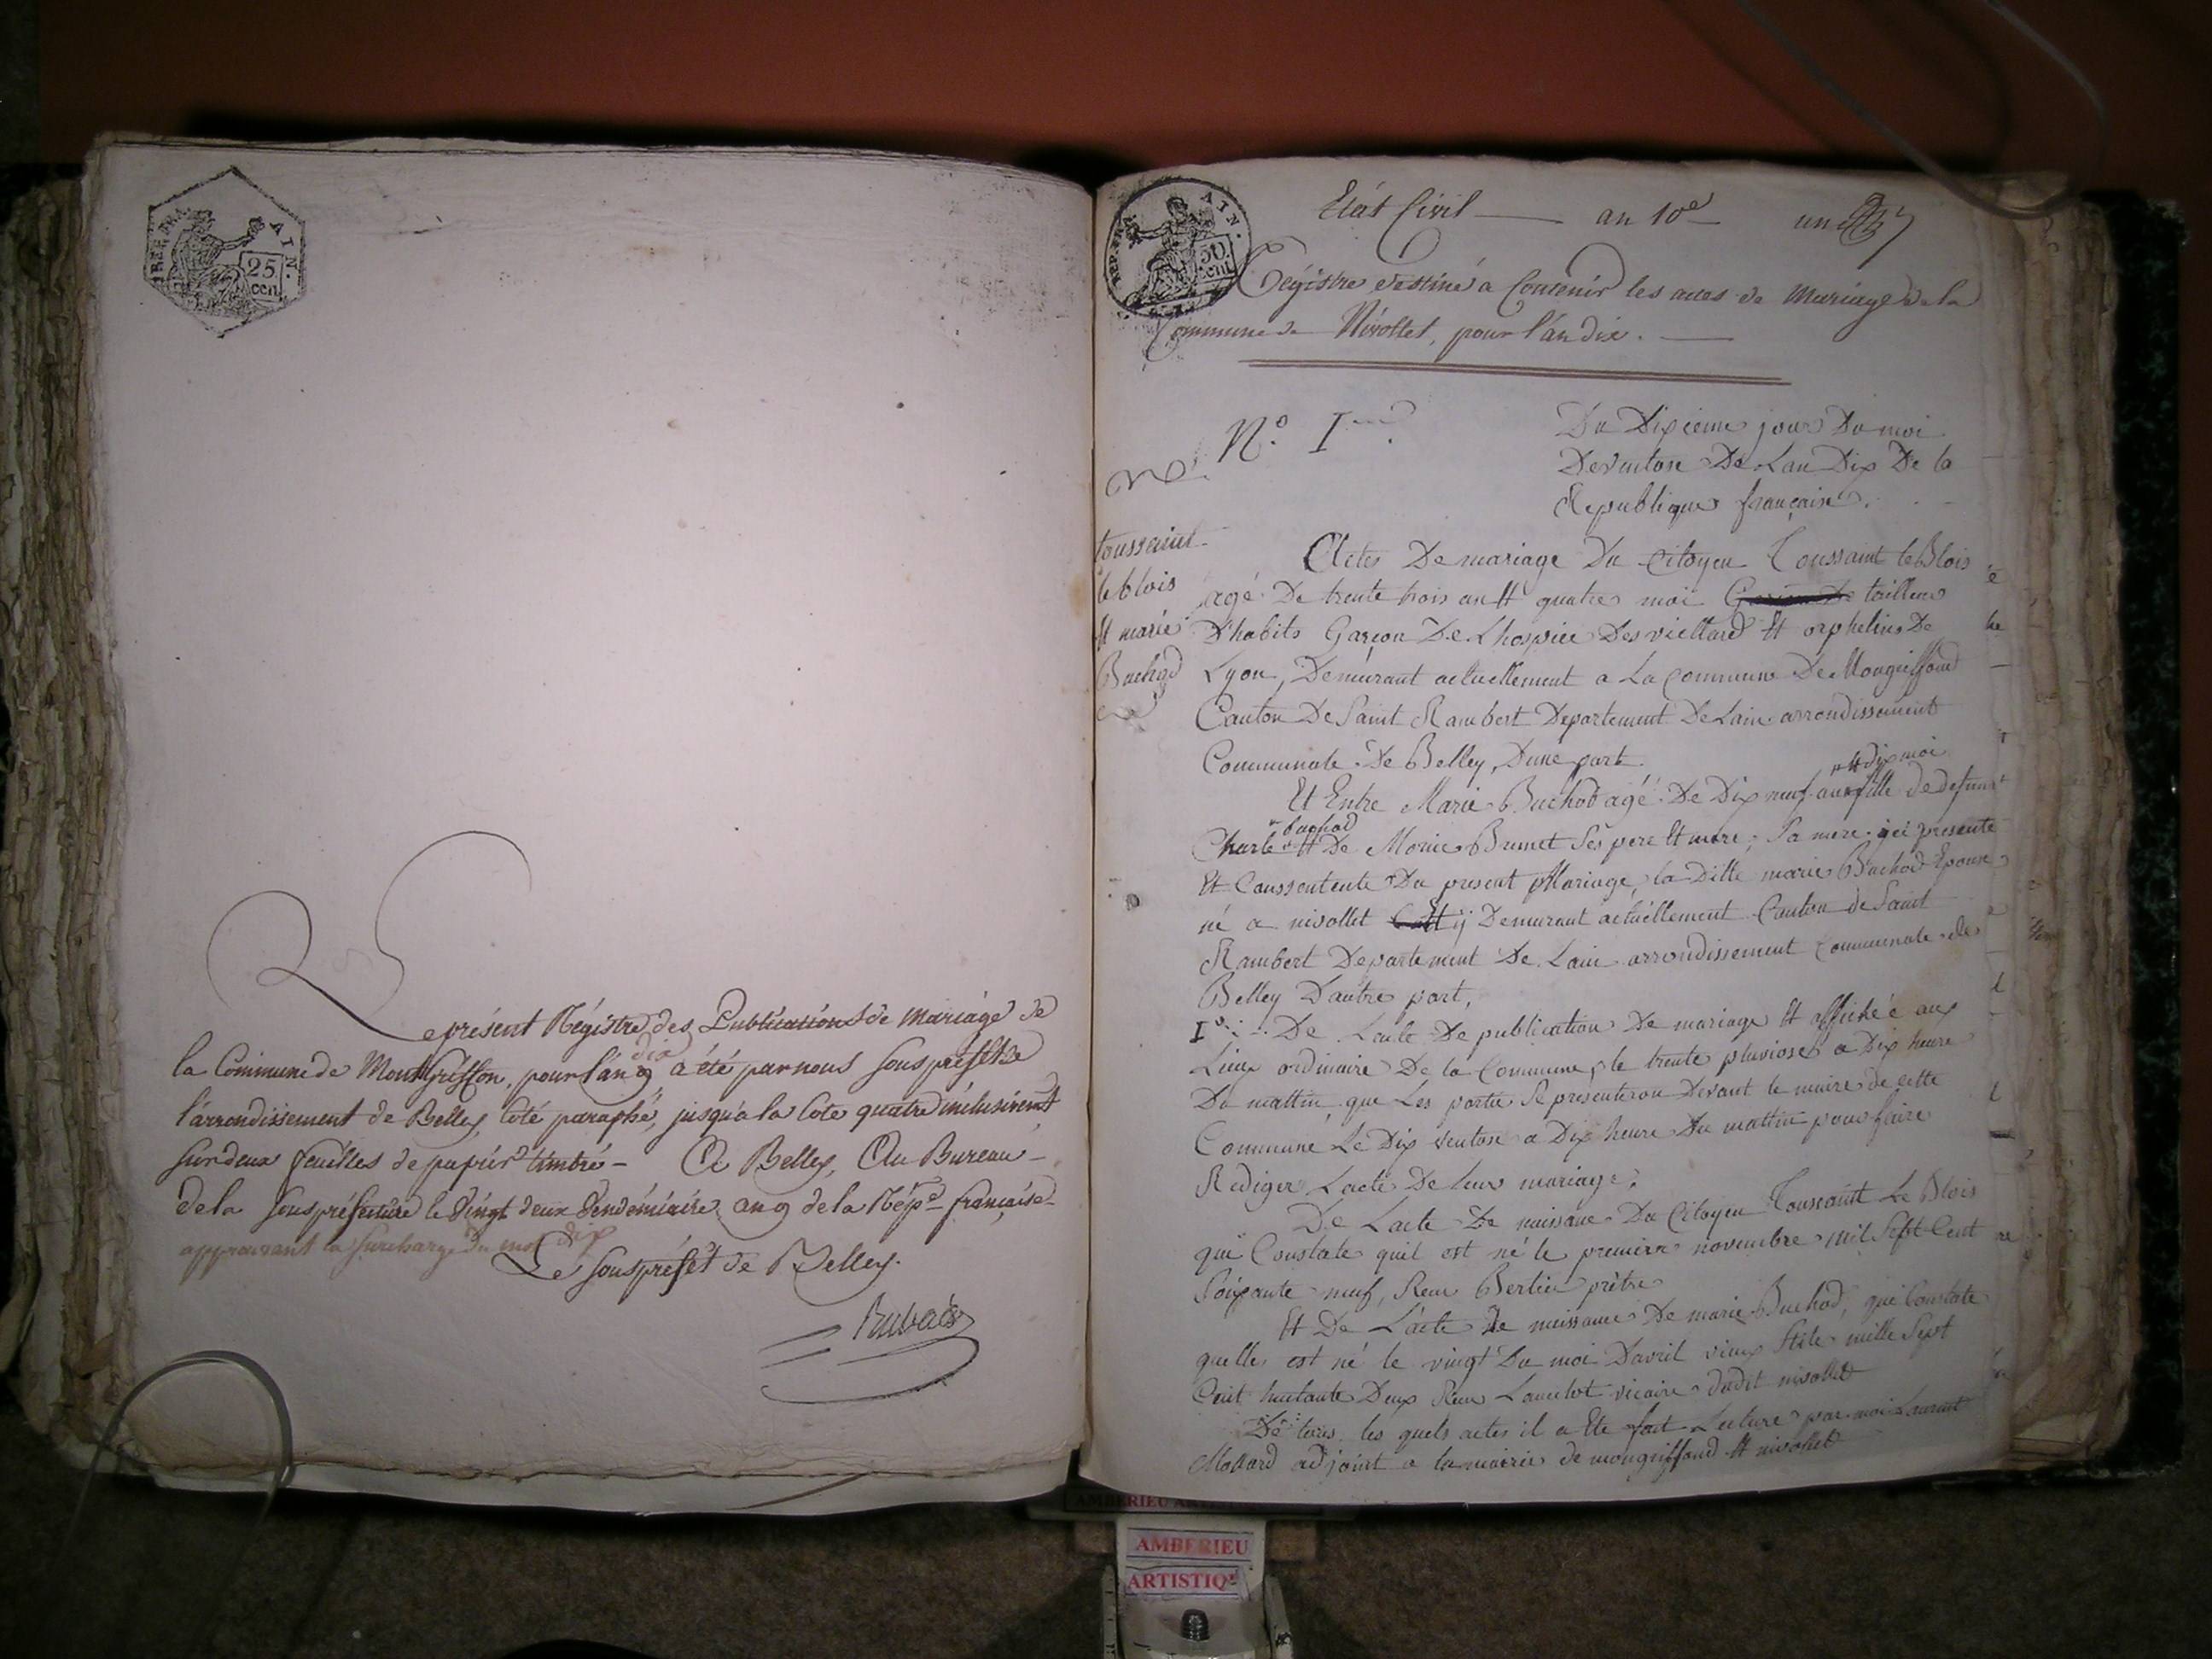 REP. FRA. AIN.
25
cen.
Le présent Régistre des Publications de mariage de
la Commune de Montgriffon, pour l'an 9 dix a été par nous Souspréfet de
l'arrondissement de Belley, coté paraphé, jusqu'a la Cote quatre inclusivemt
sur deux feuilles de papier timbré - A Belley, Au Bureau -
de la Souspréfecture le Vingt deux Vendémiaire an 9 de la Rép.e française -
approuvant la surcharge du mot dix
Le souspréfet de Belley.
AIN.
50
cent
Etat Civil — an 10e un
Régistre destiné à Contenir les actes de Mariage de la
Commune de Nivollet, pour l'an dix. —
N.o I
Du Dixieme jour Du moi
De ventose De Lan Dix De la
Republique française.
toussaint
le blois
et marie
Buchod
Actes De mariage Du Citoyen Toussaint le Blois
agé De trente trois an et quatre moi tailleur
D'habits Garçon De Lhospice Des viellard et orphelins De
Lyon, Demurant actuellement a La Commune De Mongriffond
Canton De Saint Rambert Departement De Lain arrondissement
Communale De Belley, Dune part.
Et Entre Marie Buchod agé De Dix neuf an et dix moi fille de defunt
Charle buchod et De Marie Brunet Ses pere et mere, Sa mere ici presente
Et Conssentente Du present Mariage, la Ditte marie Buchod Epouse
né a nivollet ij Demurant actuellement Canton de Saint
Rambert Departement De Lain arrondissement Communale de
Belley D'autre part,
I° De Lacte De publication De mariage et affichée aux
Lieux ordinaire De la Commune, le trente pluviose a Dix heure
Du mattin que Les partie Se presenteron Devant le maire de cette
Commune Le Dix ventose a Dix heure Du mattin pour faire
Rediger Lacte De leur mariage;
De Lacte De naissance Du Citoyen Toussaint Le Blois
qui Constate quil est né le premier novembre mil Sept Cent
Soixante neuf, Reçu Bertin prêtre
Et De Lacte De naissance De marie Buchod, qui Constate
quelle est né le vingt Du moi Davril vieux Stile mille Sept
Cent huitante Deux Reçu Lancelot vicaire dudit nivollet
De tous les quels actes il a Ete fait Lecture par moi Laurant
Mollard adjoint a la mairie de mongriffond et nivollet
AMBERIEU
ARTISTIQUE